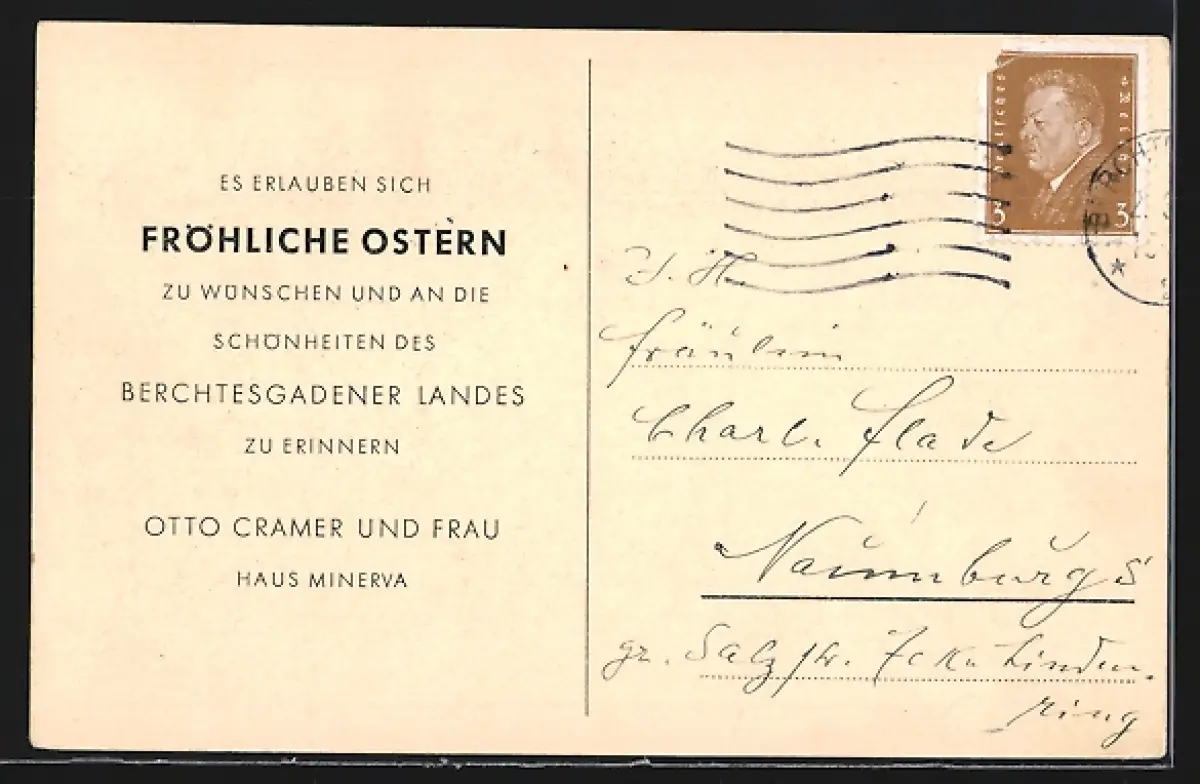 ES ERLAUBEN SICH
FRÖHLICHE OSTERN
ZU WÜNSCHEN UND AN DIE
SCHÖNHEITEN DES
BERCHTESGADENER LANDES
ZU ERINNERN
OTTO CRAMER UND FRAU
HAUS MINERVA
Deutsches Reich
3 3
Fräulein
Charl. Flade
Naumburg S
gr. Salzstr. Ecke Linden-
ring